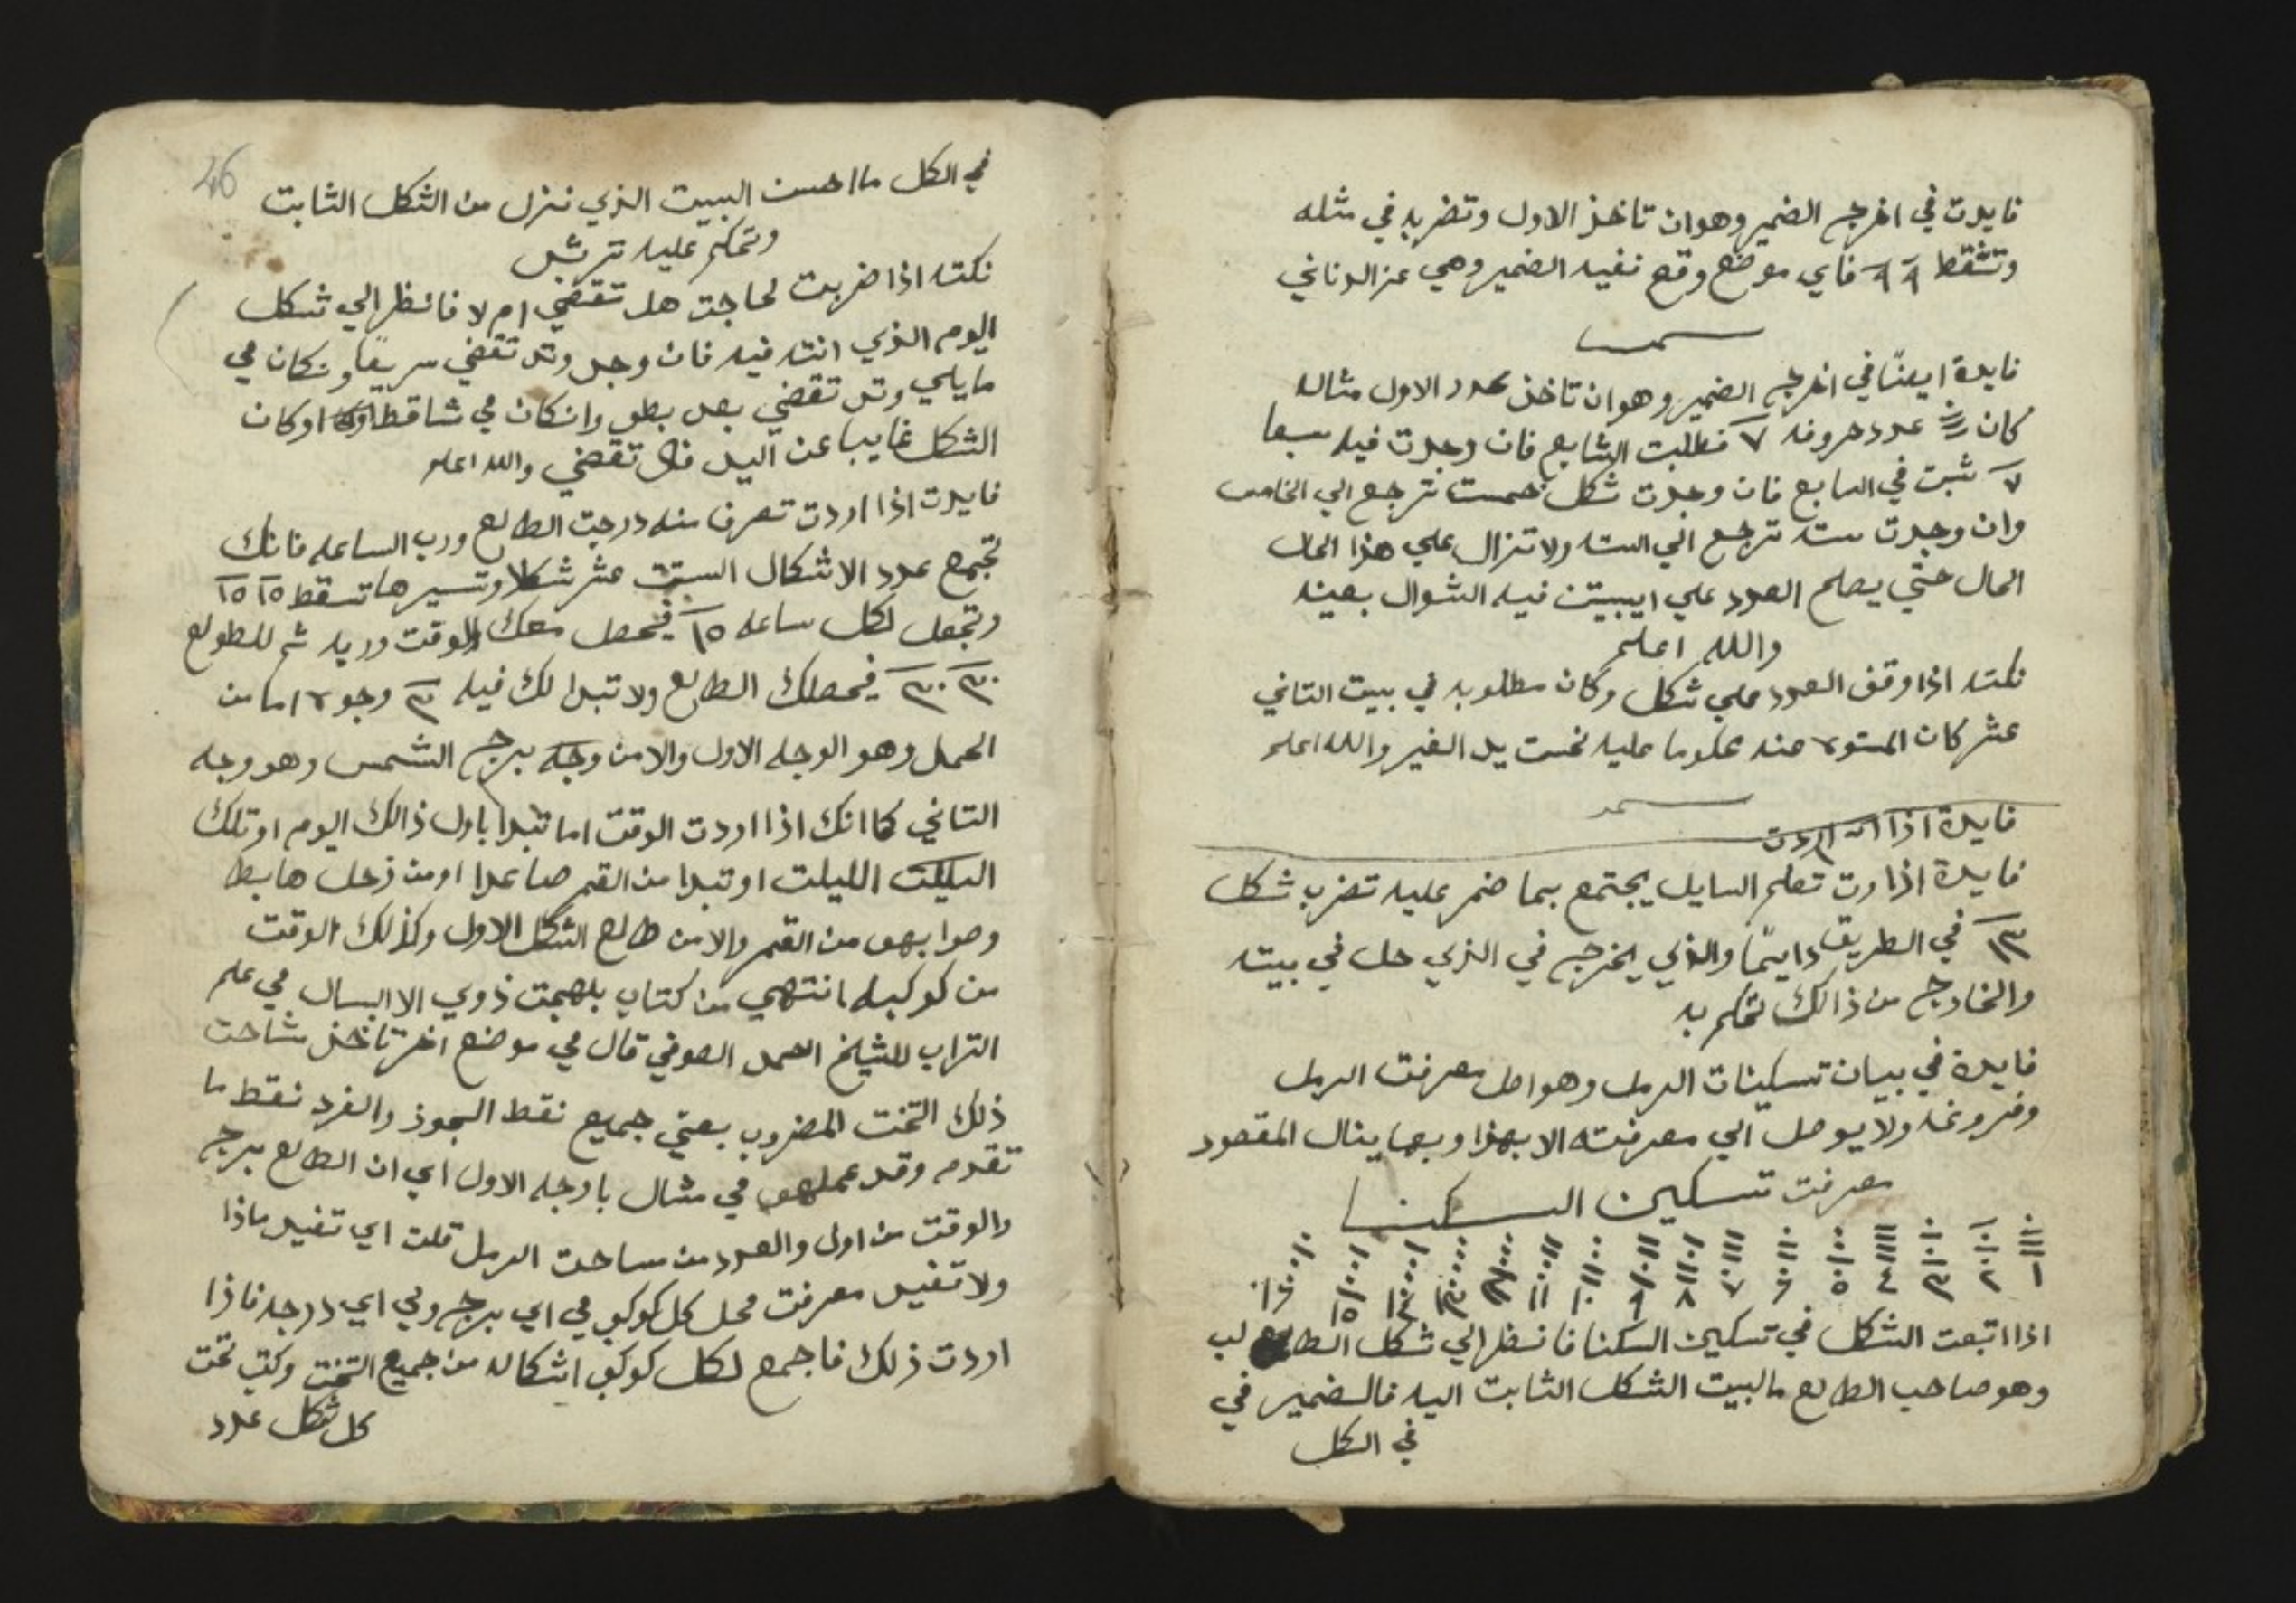 فايدت في اخرج الضمير وهو ان تاخذ الاول وتضربه في مثله
وتشقط ٩ ٩ فاي موضع وقع نفيه الضمير وهي عن الزناتي
فايدة ايضًا في اخرج الضمير وهو ان تاخذ عدد الاول مثاله
كان عدد حروفه ٧ فطلبت الشابع فان وجدت فيه سبعا
٧ ثبت في السابع فان وجدت شكل خمست ترجع الي الخامس
وان وجدت سته ترجع الي السته ولا تزال علي هذا الحال
الحال حتي يصلح العدد علي ايبيت فيه الشوال بعينه
والله اعلم
نكته اذا وقف العدد علي شكل وكان مطلوبه في بيت التاني
عشر كان المستور عنه محكوما عليه تحت يد الغير والله اعلم
فايدة اذا اردت
فايدة اذا رت تعلم السايل يجتمع بما ضمر عليه تضرب شكل
١٣ في الطريق دايمًا والذي يخرج في الذي حل في بيته
والخارج من ذالك تحكم به
فايدة في بيان تسكينات الرمل وهو اصل معرفت الرمل
وفروعه ولا يوصل الي معرفته الا بهذا وبها ينال المقصود
معرفت تسكين السكنا
١ ٢ ٣ ٤ ٥ ٦ ٧ ٨ ٩ ١٠ ١١ ١٢ ١٣ ١٤ ١٥ ١٦
اذا اتبعت الشكل في تسكين السكنا فانظر الي شكل الطالع لب
وهو صاحب الطالع مالبيت الشكل الثابت اليه فالضمير في
في الكل
46
في الكل ما احسن البيت الذي نزل من الشكل الثابت
وتحكم عليه ترشد
نكته اذا ضربت لحاجت هل تقضي ام لا فانظر الي شكل
اليوم الذي انته فيه فان وجد وتد تقضي سريعًا ونكان في
مايلي وتد تقضي بعد بطو وانكان في شاقط اوكان
الشكل غايبا عن اليد فلا تقضي والله اعلم
فايدت اذا اردت تعرف منه درجت الطالع ورب الساعه فانك
تجمع عدد الاشكال الستت عشر شكلا وتسيرها تسقط ١٥ ١٥
وتجعل لكل ساعه ١٥ فيحصل معك الوقت وريه ثم للطولع
٣٠ ٣٠ فيحصلك الطالع ولا تبدا لك فيه ٣ وجوه اما من
الحمل وهو الوجه الاول والا من وجه برج الشمس وهو وجه
التاني كما انك اذا اردت الوقت اما تبدا باول ذالك اليوم او تلك
الليلت او تبدا من القمر صاعدا او من زحل هابط
وصوابهو من القمر والا من طالع الشكل الاول وكذلك الوقت
من كوكبه انتهي من كتاب بلهجت ذوي الاالبال في علم
التراب للشيلخ احمد الصوفي قال في موضع اخر تاخذ مشاحت
ذلك التخت المضروب بعني جميع نقط الجوز والفرد نقط ما
تقدم وقد عملهو في مثال بادجه الاول اي ان الطالع برج
والوقت من اول والعدد من ساحت الرمل قلت اي تفيد ماذا
ولا تفيد معرفت محل كل كوكب في اي برج وفي اي درجه فاذا
اردت ذلك فاجمع لكل كوكب اشكاله من جميع التخت وكتب تحت
كل شكل عدد